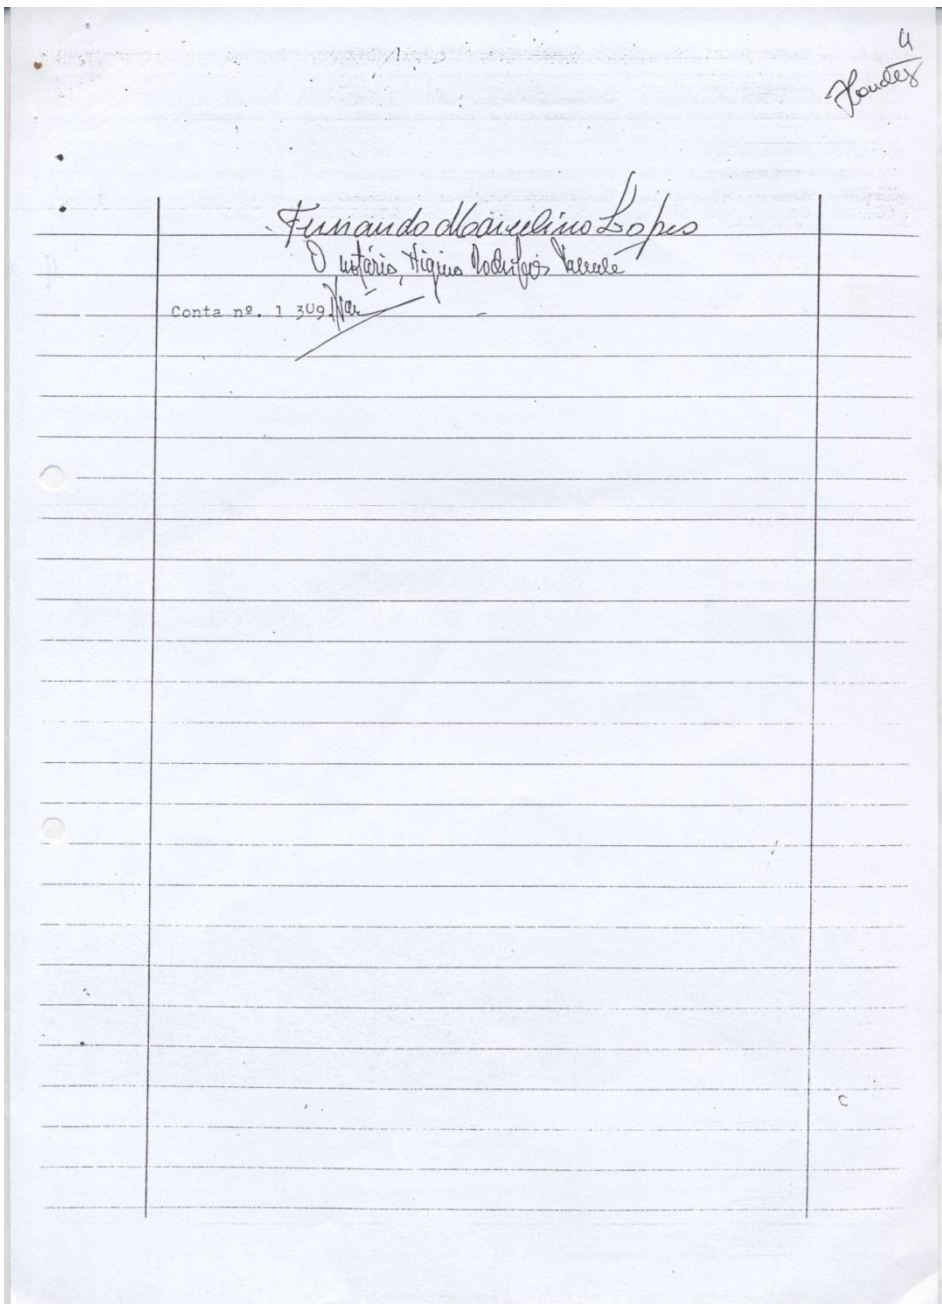 4
Fernando Marcelino Lopes
O notário, Higino Rodrigues
Conta nº. 1 309.